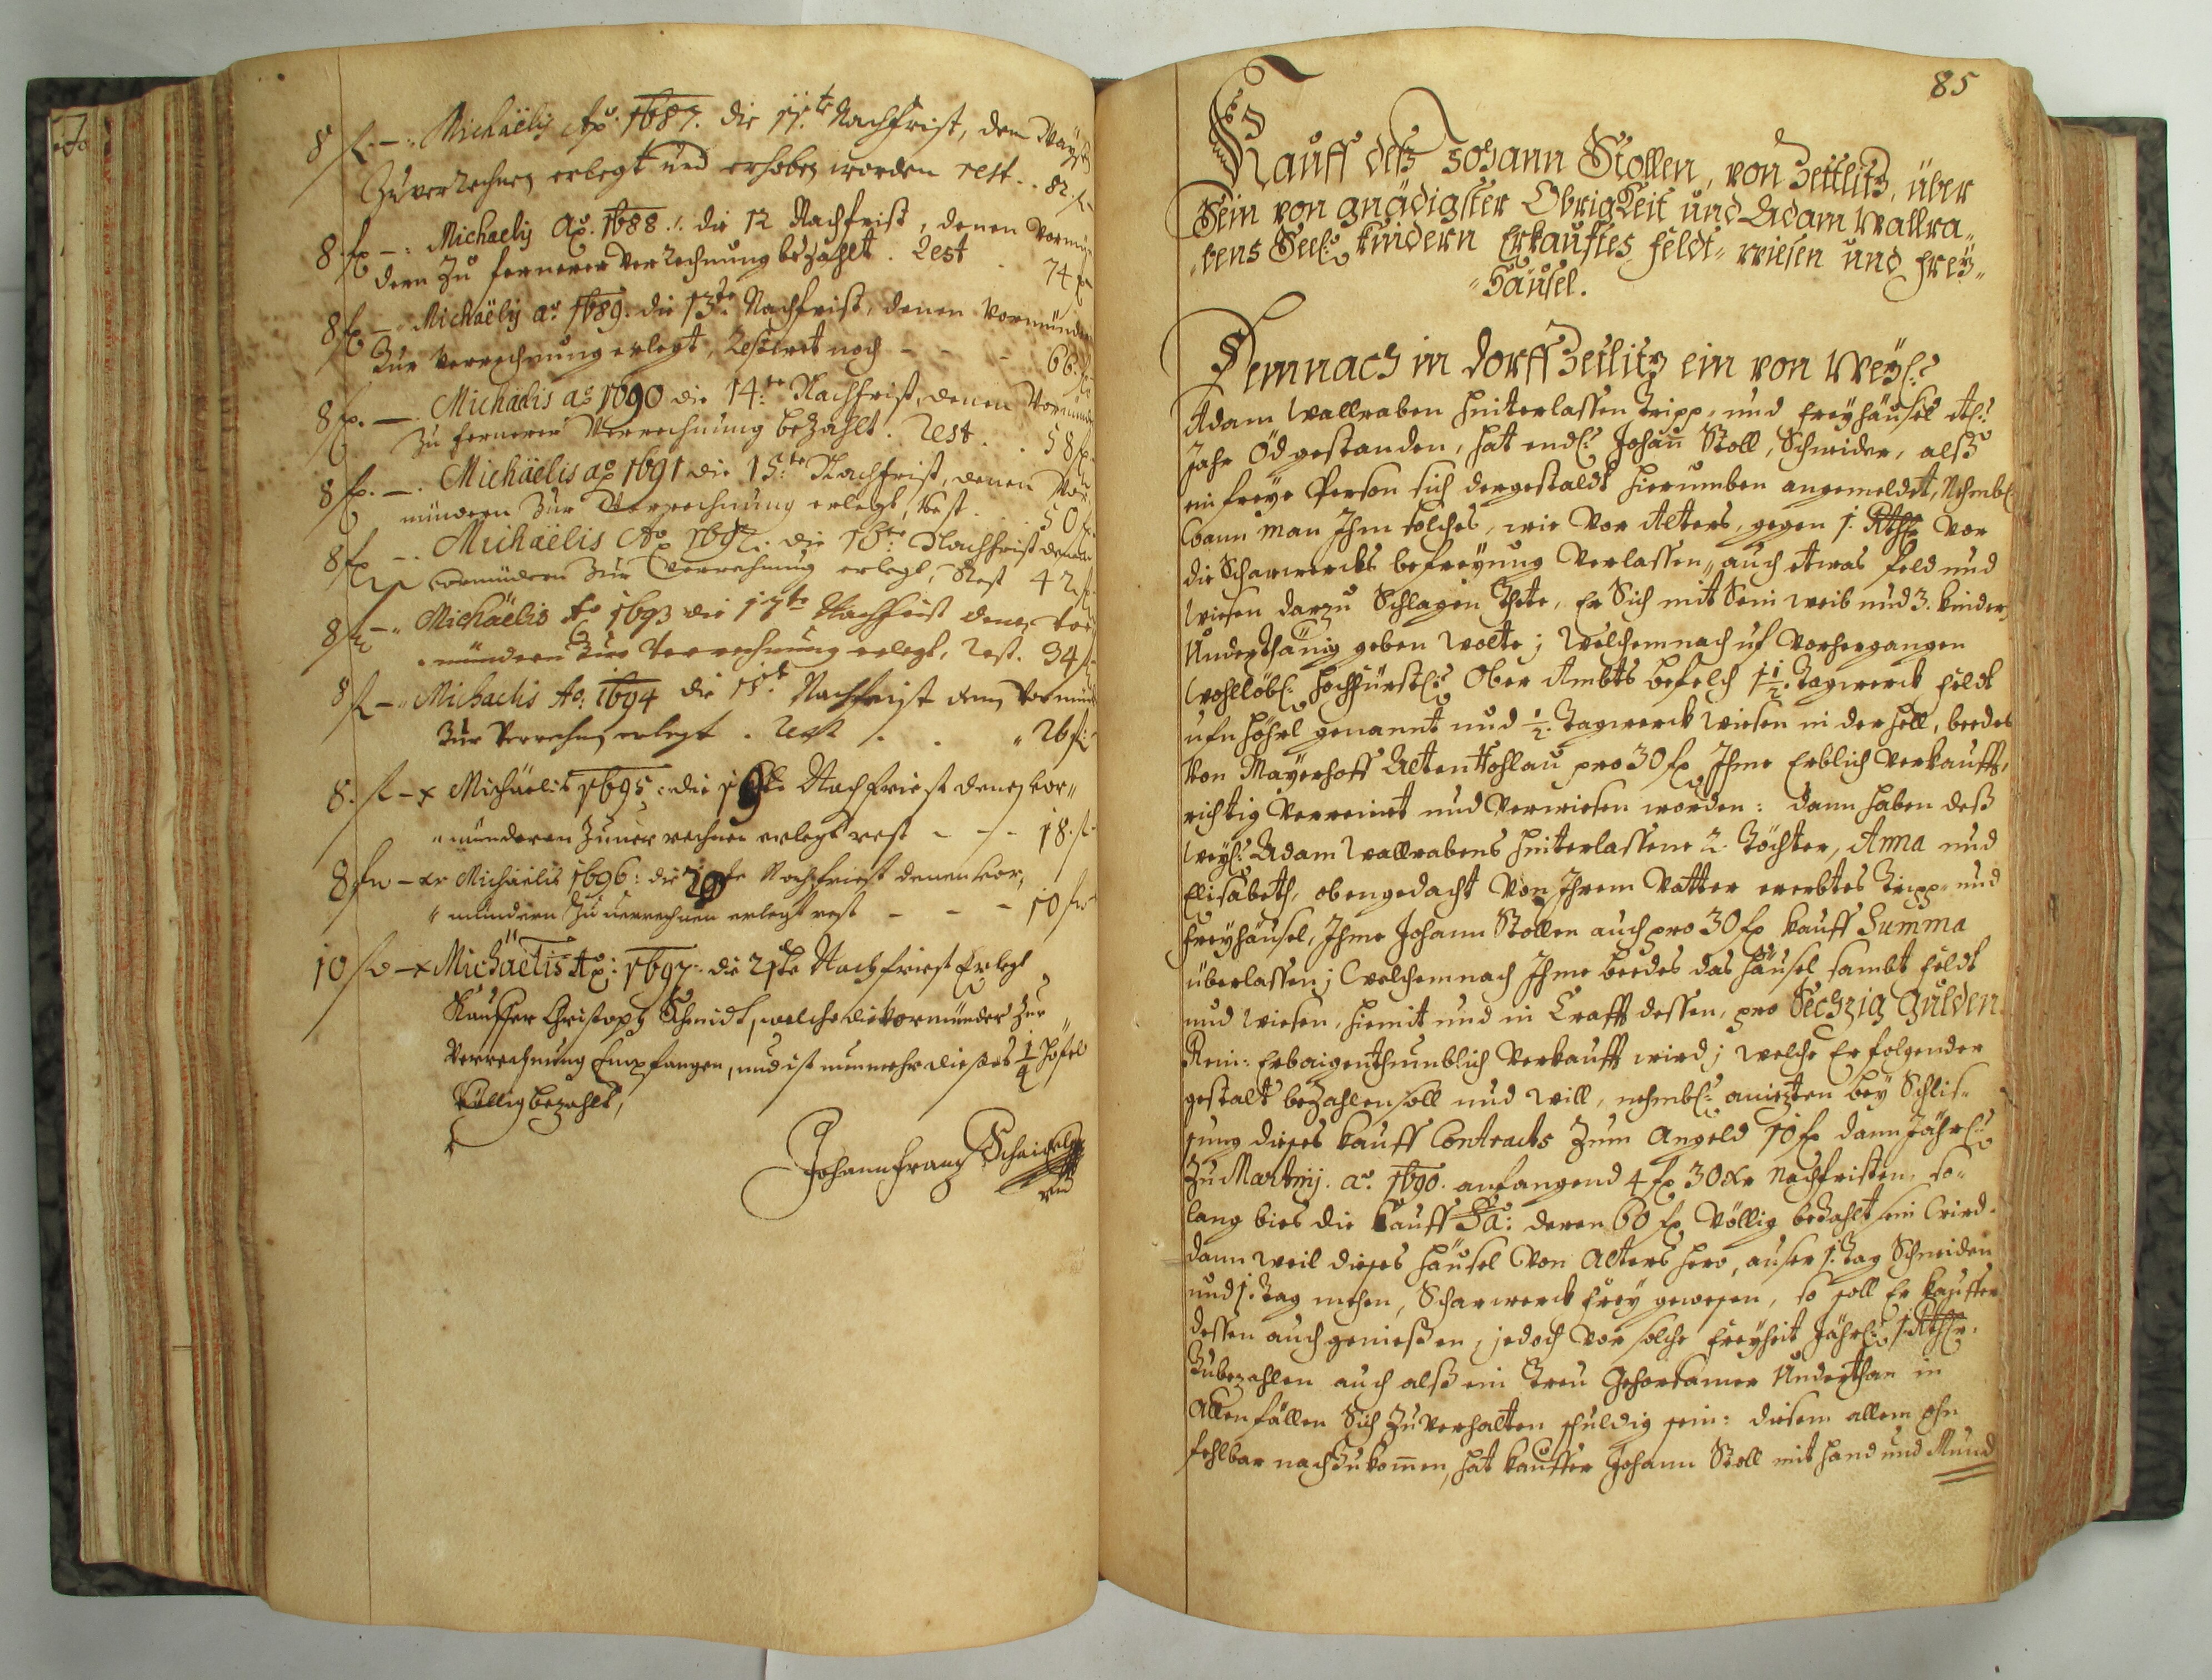 8 fl. — Michaëlis Ao. 1687. die 11.te Nachfrist, dem Ways
Zuverrechnen erlegt und erhoben worden rest . . 82. fl
8. fl — : Michaelis Ao. 1688 : die 12 Nachfrist, denen Vormün
dern Zu fernerer Verrechnung bezahlt. Rest . 74 fl
8 fl — Michaëlis ao. 1689. die 13.te Nachfrist, denen Vormündern
Zur Verrechnung erlegt, Restiret noch — — 66. fl
8 fl. — . Michaelis ao 1690 die 14.te Nachfrist, denen Vormünde
Zu fernerer Verrechnung bezahlt. Rest . . 58 fl.
8 fl. — . Michaëlis ao 1691 die 15.te Nachfrist, denen Vor
mündern Zur Verrechnung erlegt, Rest . . 50 fl.
8 fl — . Michaëlis Ao 1692. die 16.te Nachfrist denen
Vormündern Zur Verrechnung erlegt, Rest 42 fl.
8 fl — Michaëlis Ao 1693 die 17te Nachfrist denen Vor
mündern Zur Verrechnung erlegt, Rest. 34 fl
8 fl — Michaelis Ao: 1694 die 18.te Nachfrist denen Vormünd
Zur Verrechng erlegt . Rest . . 26 fl:
8. fl — x Michäelis 1695: die 19te Nachfriest denen vor„
„münderen Zuuerrechnen erlegt rest — — 18. fl
8 fl — xr Michäelis 1696: die 20te Nachfriest denen vor„
„mündern Zu uerrechnen erlegt rest — — — 10 fl
10 fl — x Michäelis Ao: 1697: die 21te Nachfriest Erlegt
Kauffer Christoph Schmidt, welche die Vormünder Zur
Verrechnung Empfangen, und ist nunmehr dieses 1/4 Höfel
Völlig bezahlt,
Johann Frantz
85
Kauff deß Johann Stollen, von Zettlitz, über
Sein von gnädigster Obrigkeit und Adam Wallra„
„bens Seel: Kindern Erkauftes Feldt„ Wiesen und Frey„
„Häusel.
Demnach im Dorff Zetlitz ein von Weyl:
Adam Wallraben hinterlassen Tripp„ und Freyhäusel etl:
Jahr Öd gestanden, hat endl: Johann Stoll, Schneider, alß
ein freye Person sich dergestaldt hierumben angemeldet, Nehmbl:
Wann man Ihm solches, wie Vor Alters, gegen 1. Rthlr Vor
die Scharwercks befreyung Verlassen, auch etwas Feld und
Wiesen darzu Schlagen thete, Er Sich mit Sein Weib und 3. Kinder
Underthänig geben wolte; Welchemnach uf Vorhergangen
Wohllöbl: Hochfürstl: Ober Ambts Befelch 1 1/2. Tagwerck Feldt
ufn Höhrl genannt und 1/2. Tagwerck Wiesen in der Hell, beedes
Von Mayerhoff Alten Rohlau pro 30 fl Ihme Erblich Verkaufft,
richtig Verreinet und Verwiesen worden: dann haben deß
Weyl: Adam Wallrabens hinterlassene 2. Töchter, Anna und
Elisabeth, obengedacht Von Ihrem Vatter ererbtes Tripp„ und
Freyhäusel, Ihme Johann Stollen auch pro 30 fl Kauff Summa
überlassen; Welchemnach Ihme beedes das Häusel sambt Feldt
und Wiesen, hiemit und in Crafft dessen, pro Sechzig Gulden
Rein: Erbaigenthumblich Verkaufft wird; welche Er folgender
gestalt bezahlen soll und will, nehmbl: aniezten bey Schlis„
sung dieses Kauff Contracts Zum Angeld 10 fl dann Jährl:
Zu Martinj. ao. 1690. anfangend 4 fl 30 xr Nachfristen, so„
lang bies die Kauff Sa: deren 60 fl Völlig bezahlt sein wird.
dann weil dieses Häusel Von Alters hero, auser 1. Tag Schneiden
und 1. Tag mehen, Scharwerck frey gewesen, so soll Er Kauffer
dessen auch genießen, jedoch vor solche Freyheit Jährl: 1. Rthlr.
Zubezahlen auch alß ein Treu Gehorsamer Underthan in
Allen fällen Sich Zuverhalten schuldig sein: diesem allem ohn
fehlbar nachzukommen, hat Kauffer Johann Stoll mit Hand und Mund